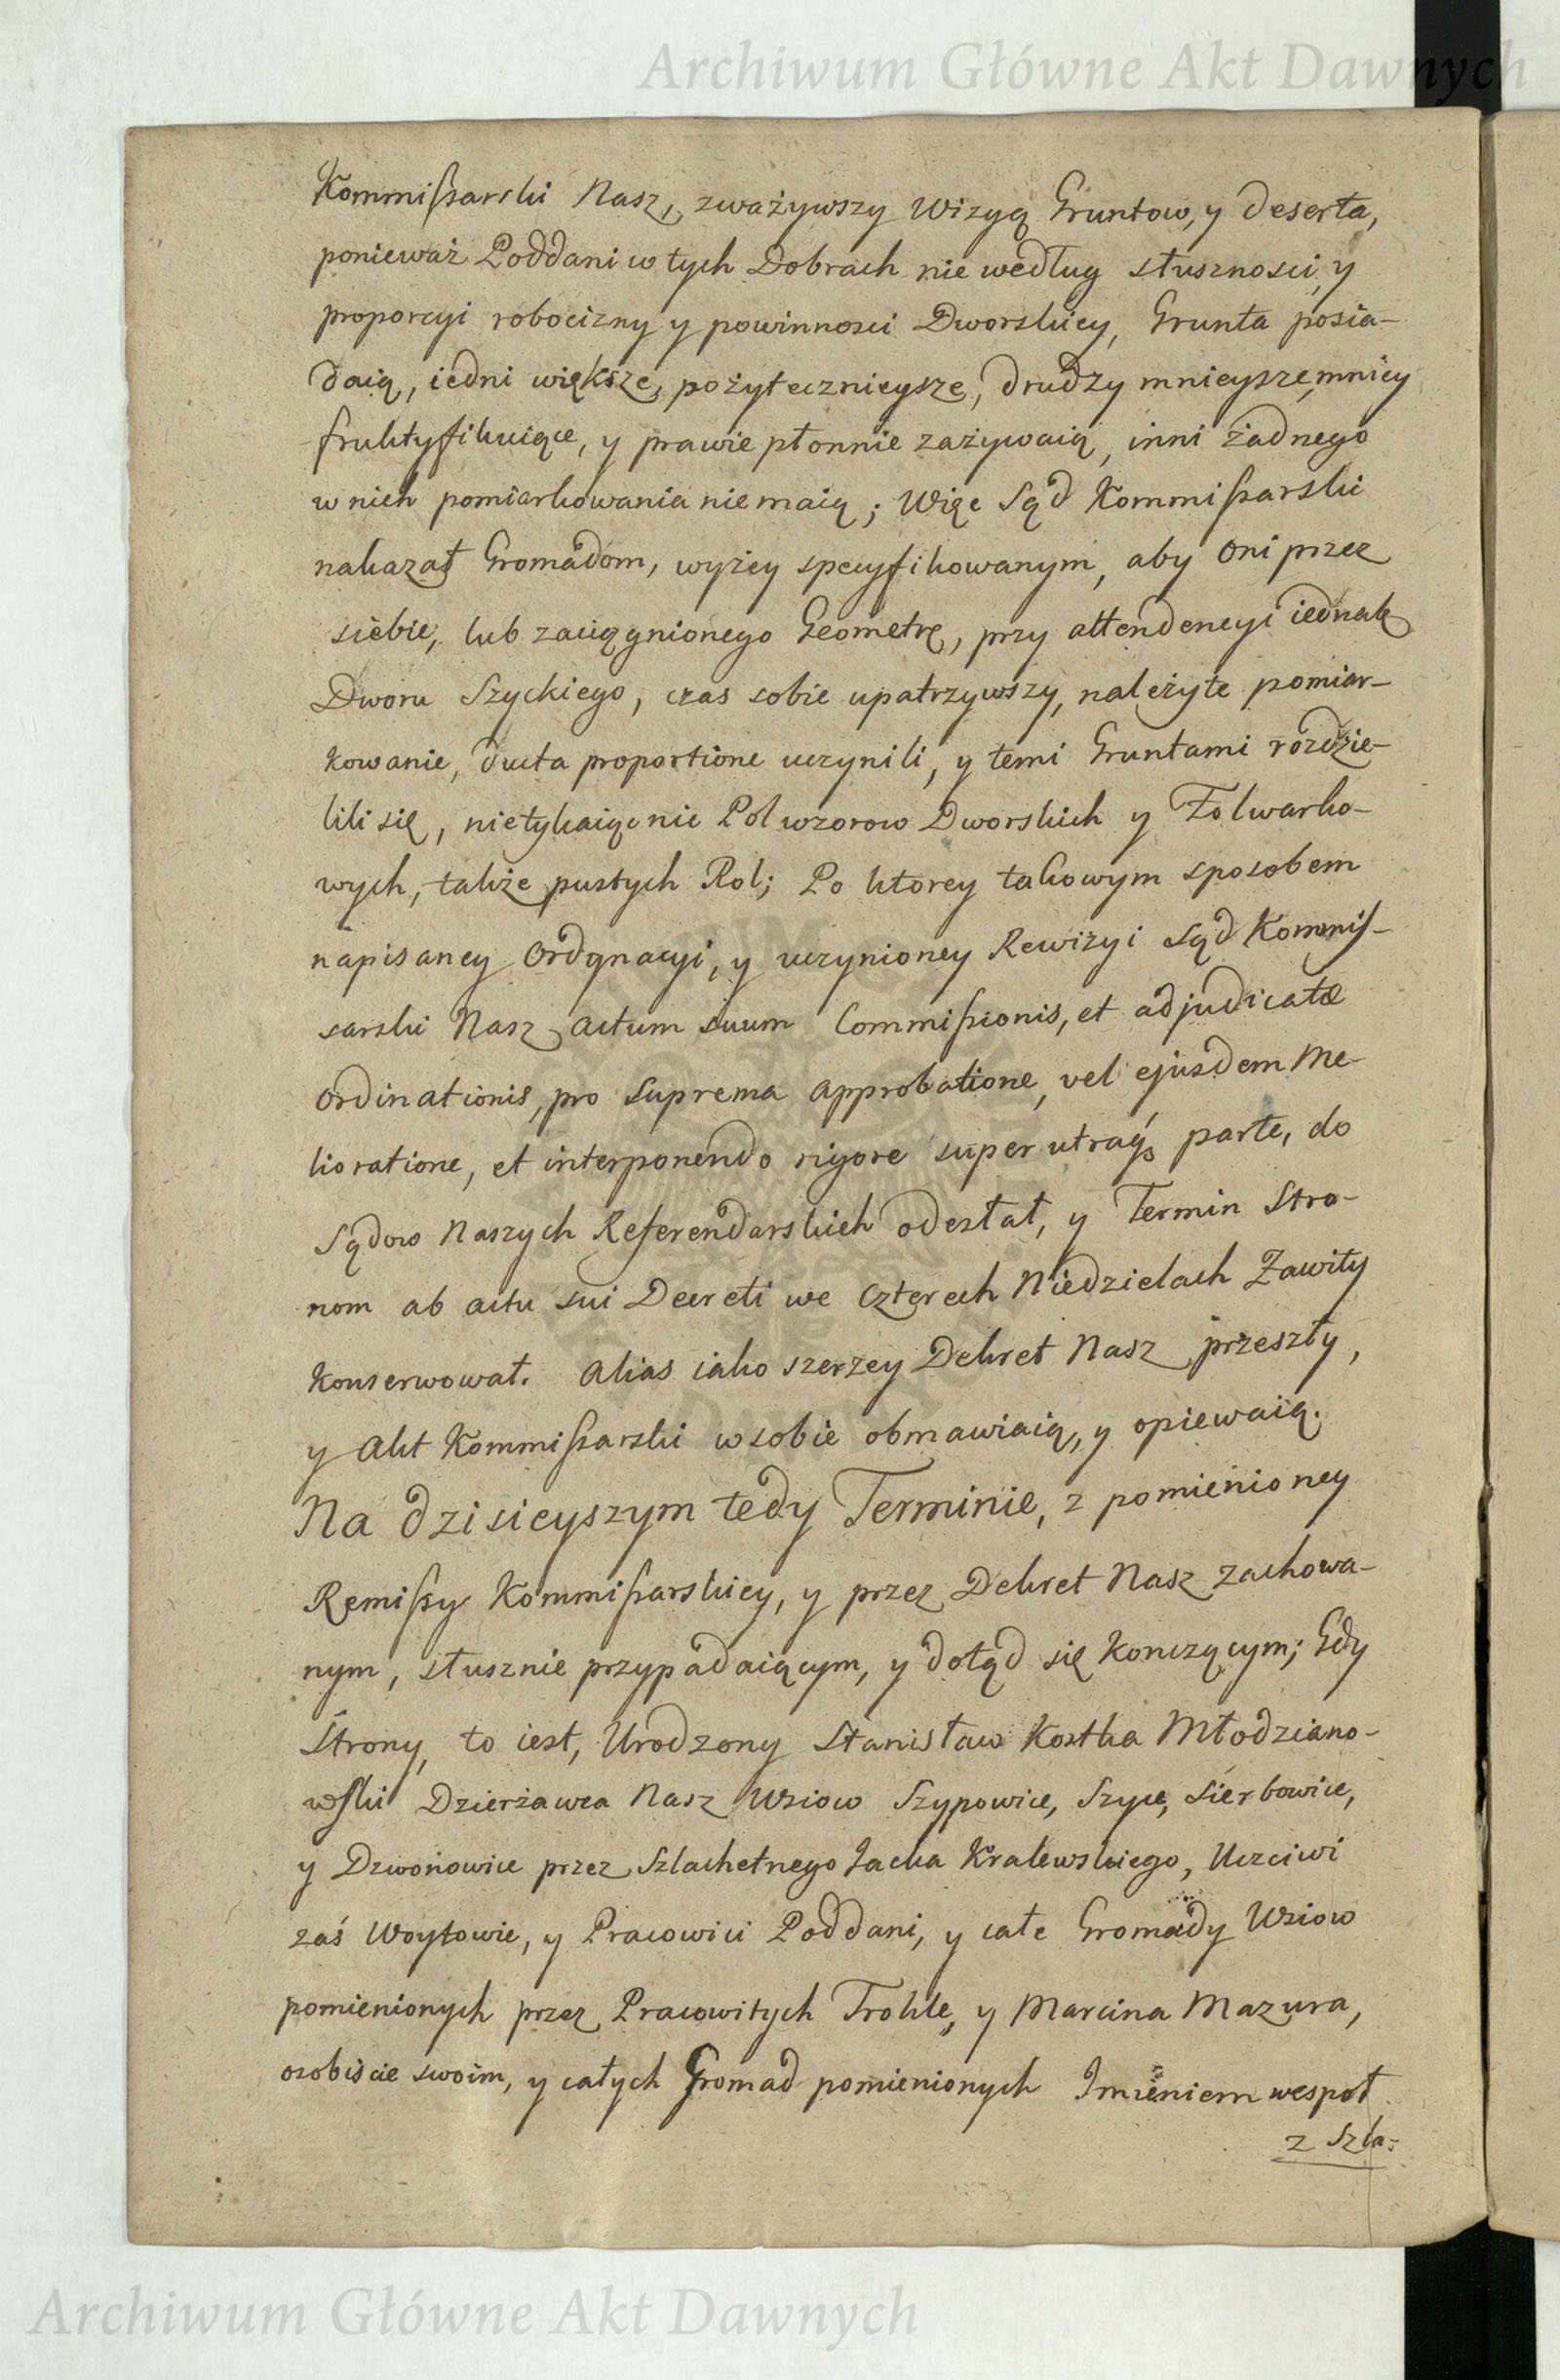 Archiwum Główne Akt Dawnych
Kommißarski Nasz, zważywszy Wizyą Gruntow, y deserta,
ponieważ Poddani w tych Dobrach nie według słusznosci, y
proporcyi robocizny y powinnosci Dworskiey, Grunta posia-
daią, iedni większe, pożytecznieysze, drudzy mnieysze, mniey
fruktyfikuiące, y prawie płonnie zażywaią, inni żadnego
w nich pomiarkowania nie maią; Więc Sąd Kommißarski
nakazał Gromadom, wyżey specyfikowanym, aby oni przez
siebie, lub zaciągnionego Geometrę, przy attendencyi iednak
Dworu Szyckiego, czas sobie upatrzywszy, należyte pomiar-
kowanie, ducta proportione uczynili, y temi Gruntami rozdzie-
lili się, nietykaiąc nic Pol wzorow Dworskich y Folwarko-
wych, także pustych Rol; Po ktorey takowym sposobem
napisaney Ordynacyi, y uczynioney Rewizyi Sąd Kommis-
sarski Nasz actum suum Commißionis, et adjudicatæ
Ordinationis, pro suprema approbatione, vel ejusdem Me-
lioratione, et interponendo rigore super utraq3 parte, do
Sądow Naszych Referendarskich odesłał, y Termin Stro-
nom ab actu sui Decreti we czterech Niedzielach Zawity
konserwował. Alias iako szerzey Dekret Nasz przeszły,
y Akt Kommißarski w sobie obmawiaią, y opiewaią.
Na dzisieyszym tedy Terminie, z pomienioney
Remißy Kommißarskiey, y przez Dekret Nasz zachowa-
nym, słusznie przypadaiącym, y dotąd się kończącym; Gdy
Strony, to iest, Urodzony Stanisław Kostka Młodziano-
wski Dzierżawca Nasz Wsiow Szypowice, Szyce, Sierbowice,
y Dzwonowice przez Szlachetnego Jacka Kralewskiego, Uczciwi
zaś Woytowie, y Pracowici Poddani, y całe Gromady Wsiow
pomienionych przez Pracowitych Trokle, y Marcina Mazura,
osobiście swoim, y całych Gromad pomienionych Imieniem wespoł
z Szla-
Archiwum Główne Akt Dawnych